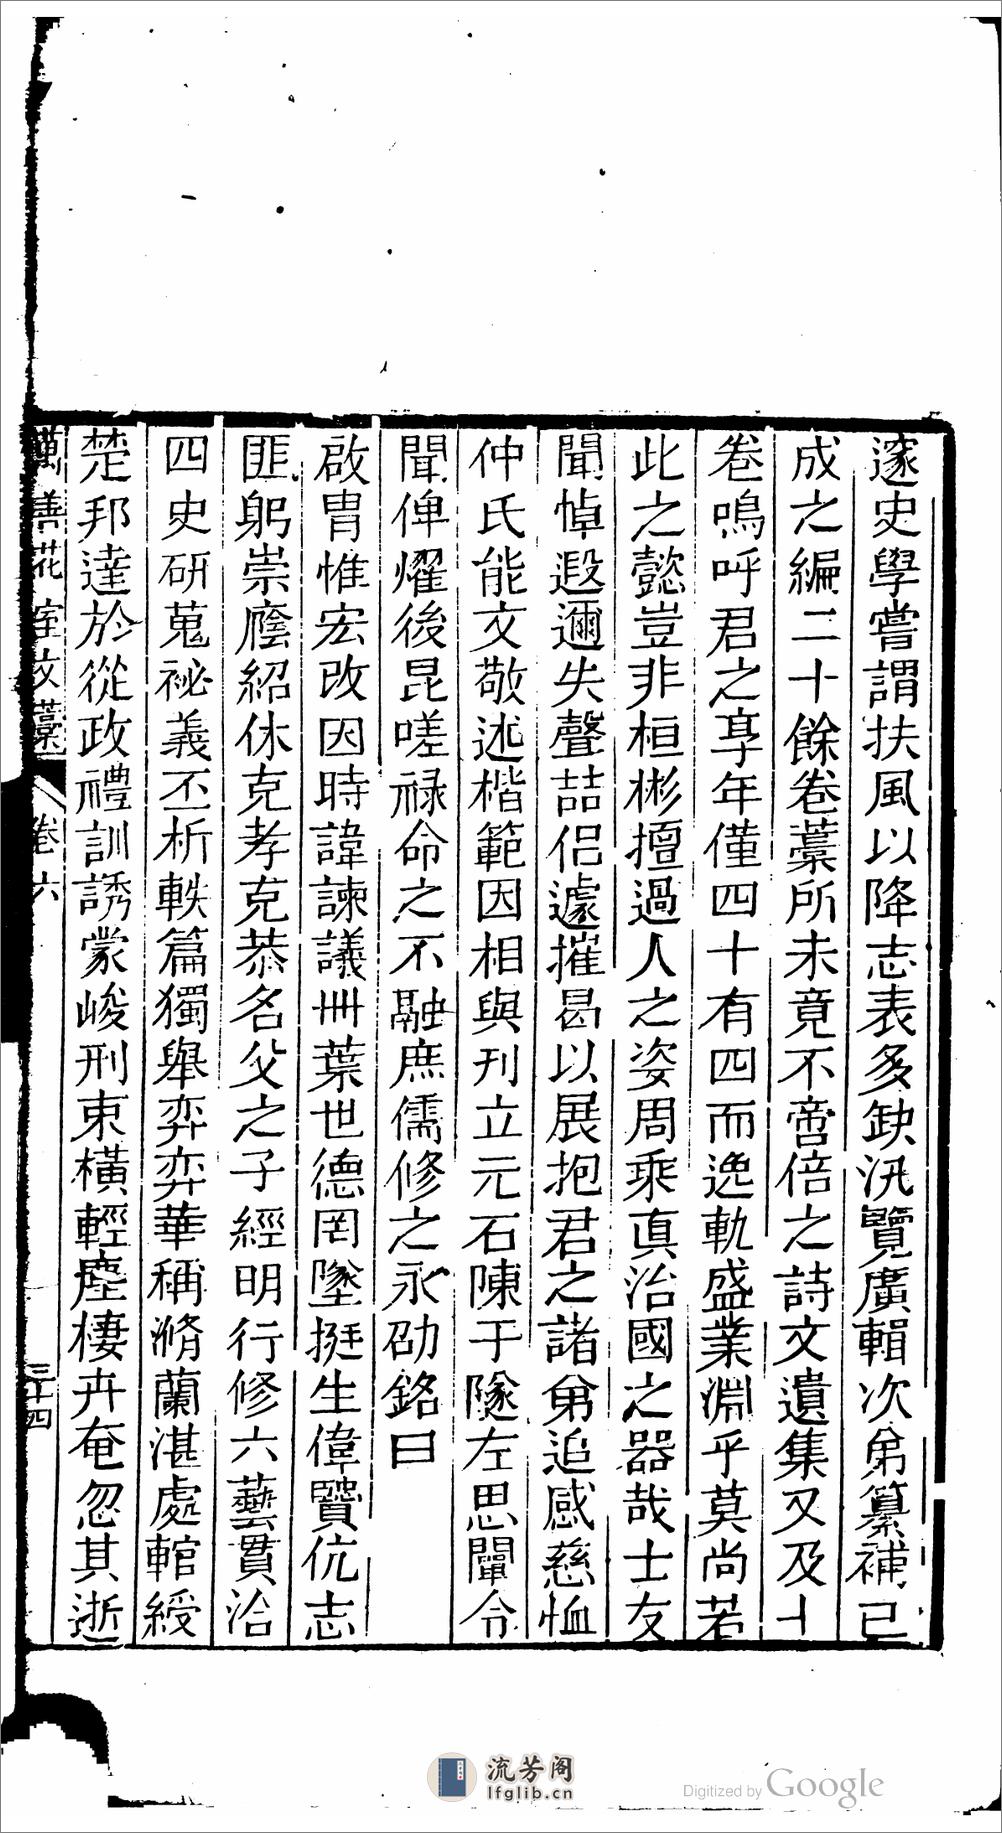 邃史學嘗謂扶風以降志表多缺汎覽廣輯次弟纂補已
成之編二十餘卷藁所未竟不啻倍之詩文遺集又及十
卷嗚呼君之享年僅四十有四而逸軌盛業淵乎莫尚若
此之懿豈非桓彬擅過人之姿周乘真治國之器哉士友
聞悼遐邇失聲喆侣遽摧曷以展抱君之諸弟追感慈恤
仲氏能文敬述楷範因相與刊立元石陳于隧左思闡令
聞俾燿後昆嗟祿命之不融庶儒修之永劭銘曰
啟胄惟宏改因時諱諫議冊葉世德罔墜挺生偉贒伉志
匪躬崇廕紹休克孝克恭名父之子經明行修六藝貫洽
四史研蒐祕義丕析軼篇獨舉弈弈華稱滫蘭湛處輨綬
楚邦達於從政禮訓誘蒙峻刑束橫輕塵棲卉奄忽其逝
萬善花室文藁 卷六 三十四
流芳阁
lfglib.cn
Digitized by Google